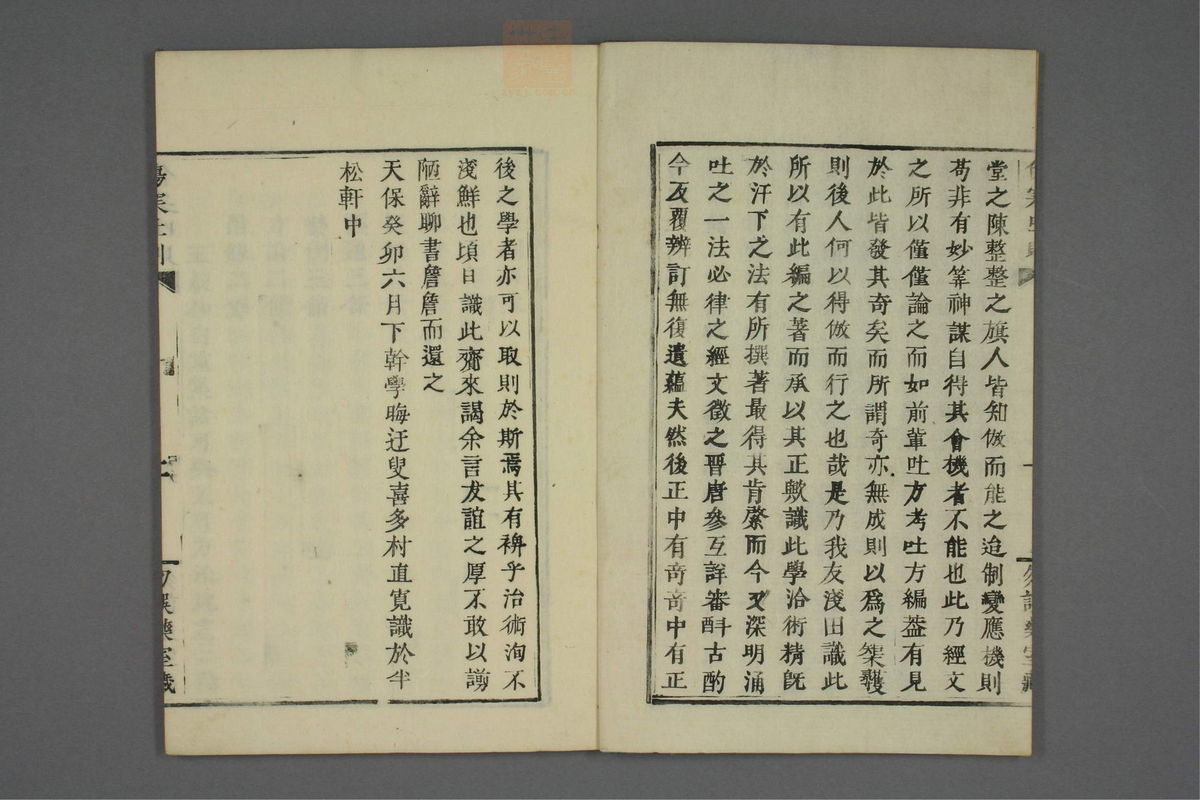 堂之陳整整之旗人皆知倣而能之迨制變應機則
苟非有妙筭神謀自得其會機者不能也此乃經文
之所以僅僅論之而如前軰吐方考吐方編葢有見
於此皆發其奇矣而所謂奇亦無成則以爲之榘矱
則後人何以得倣而行之也哉是乃我友淺田識此
所以有此編之著而承以其正歟識此學洽術精旣
於汗下之法有所撰著最得其肯綮而今又深明涌
吐之一法必律之經文徵之晋唐參互詳審斟古酌
今反覆辨訂無復遺蘊夫然後正中有奇奇中有正
後之學者亦可以取則於斯焉其有裨乎治術洵不
淺鮮也頃日識此齎來謁余言友誼之厚不敢以謭
陋辭聊書詹詹而還之
天保癸卯六月下幹學晦迂叟喜多村直寬識於半
松軒中
勿誤藥室藏